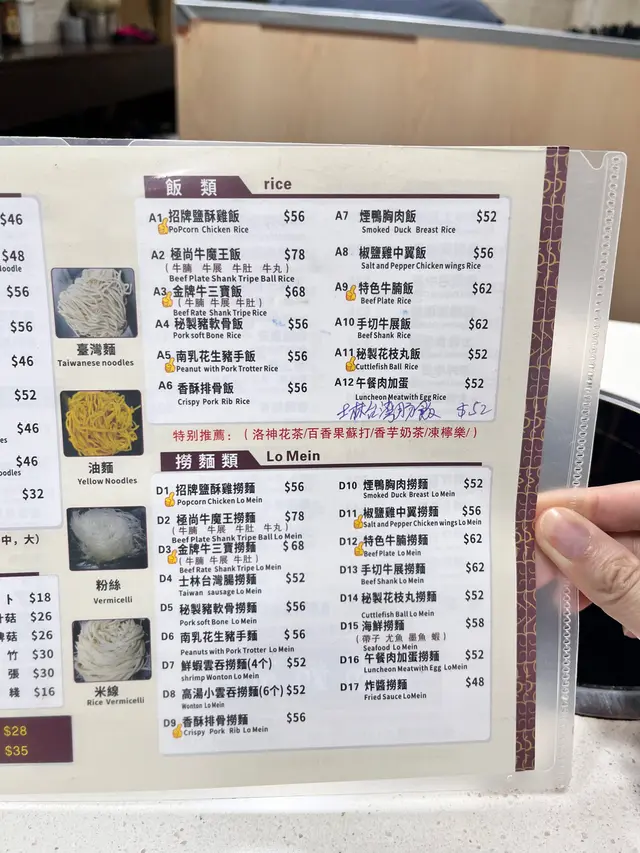 $46
$48
oodle
$56
$56
$46
$52
$46
es
$46
oodles
$32
中，大）
卜 $18
菇 $26
菇 $26
竹 $30
張 $30
$16
$28
$35
臺灣麵
Taiwanese noodles
油麵
Yellow Noodles
粉絲
Vermicelli
米線
Rice Vermicelli
飯類 rice
A1 招牌鹽酥雞飯 $56
PoPcorn Chicken Rice
A2 極尚牛魔王飯 $78
（牛腩 牛展 牛肚 牛丸）
Beef Plate Shank Tripe Ball Rice
A3 金牌牛三寶飯 $68
（牛腩 牛展 牛肚）
Beef Rate Shank Tripe Rice
A4 秘製豬軟骨飯 $56
Pork soft Bone Rice
A5 南乳花生豬手飯 $56
Peanut with Pork Trotter Rice
A6 香酥排骨飯 $56
Crispy Pork Rib Rice
A7 煙鴨胸肉飯 $52
Smoked Duck Breast Rice
A8 椒鹽雞中翼飯 $56
Salt and Pepper Chicken wings Rice
A9 特色牛腩飯 $62
Beef Plate Rice
A10 手切牛展飯 $62
Beef Shank Rice
A11 秘製花枝丸飯 $52
Cuttlefish Ball Rice
A12 午餐肉加蛋 $52
Luncheon Meatwith Egg Rice
士林台灣腸飯 $52
特别推薦：（ 洛神花茶/百香果蘇打/香芋奶茶/凍檸樂/ ）
撈麵類 Lo Mein
D1 招牌鹽酥雞撈麵 $56
Popcorn Chicken Lo Mein
D2 極尚牛魔王撈麵 $78
（牛腩 牛展 牛肚 牛丸）
Beef Plate Shank Tripe Ball Lo Mein
D3 金牌牛三寶撈麵 $68
（牛腩 牛展 牛肚）
Beef Rate Shank Tripe Lo Mein
D4 士林台灣腸撈麵 $52
Taiwan sausage Lo Mein
D5 秘製豬軟骨撈麵 $56
Pork soft Bone Lo Mein
D6 南乳花生豬手麵 $56
Peanuts with Pork Trotter Lo Mein
D7 鮮蝦雲吞撈麵(4个) $52
shrimp Wonton Lo Mein
D8 高湯小雲吞撈麵(6个) $52
Wonton Lo Mein
D9 香酥排骨撈麵 $56
Crispy Pork Rib Lo Mein
D10 煙鴨胸肉撈麵 $52
Smoked Duck Breast Lo Mein
D11 椒鹽雞中翼撈麵 $56
Salt and Pepper Chicken wings Lo Mein
D12 特色牛腩撈麵 $62
Beef Plate Lo Mein
D13 手切牛展撈麵 $62
Beef Shank Lo Mein
D14 秘製花枝丸撈麵 $52
Cuttlefish Ball Lo Mein
D15 海鮮撈麵 $58
（帶子 尤魚 墨魚 蝦）
Seafood Lo Mein
D16 午餐肉加蛋撈麵 $52
Luncheon Meatwith Egg LoMein
D17 炸醬撈麵 $48
Fried Sauce Lo Mein